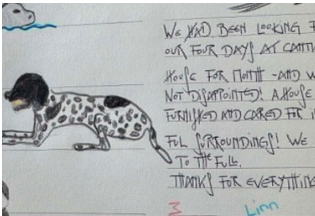 WE HAD BEEN LOOKING F
OUR FOUR DAYS AT
HOUSE FOR MONTH - AND W
NOT DISAPPOINTED! A HOUSE
FURNISHED AND CARED FOR
FUL SURROUNDINGS! WE
TO THE FULL.
THANKS FOR EVERYTHING
Linn